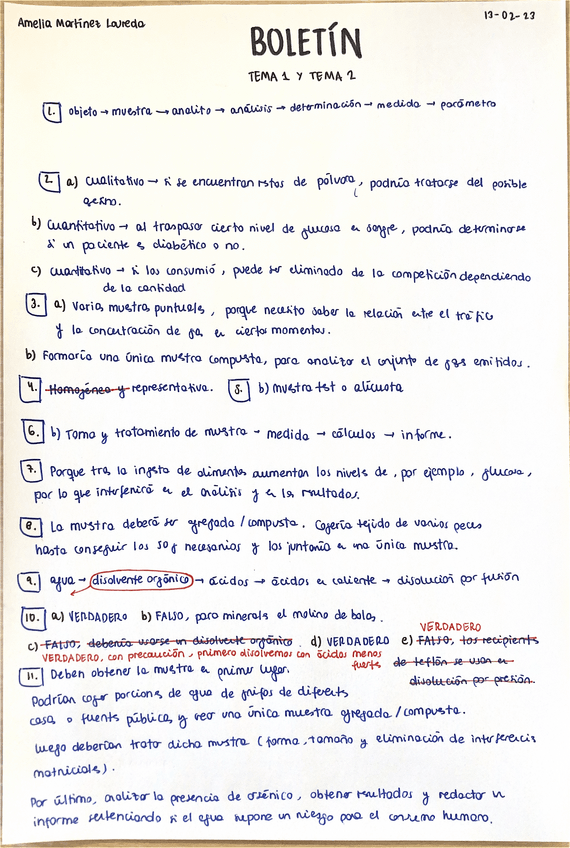 Amelia Martínez Loureda
13-02-23
BOLETÍN
TEMA 1 Y TEMA 2
1. objeto → muestra → analito → análisis → determinación → medida → parámetro
2. a) Cualitativo → si se encuentran restos de pólvora, podría tratarse del posible
asesino.
b) Cuantitativo → al traspasar cierto nivel de glucosa en sangre, podría determinarse
si un paciente es diabético o no.
c) Cuantitativo → si los consumió, puede ser eliminado de la competición dependiendo
de la cantidad
3. a) Varias muestras puntuales, porque necesito saber la relación entre el tráfico
y la concentración de gas en ciertos momentos.
b) Formaría una única muestra compuesta, para analizar el conjunto de gases emitidos.
4. Homogénea y representativa. 5. b) muestra test o alícuota
6. b) Toma y tratamiento de muestra - medida → cálculos → informe.
7. Porque tras la ingesta de alimentos aumentan los niveles de, por ejemplo, glucosa,
por lo que interferirá en el análisis y en los resultados.
8. La muestra deberá ser agregada/compuesta. Cogería tejido de varios peces
hasta conseguir los 50 g necesarios y los juntaría en una única muestra.
9. agua → disolvente orgánico → ácidos → ácidos en caliente → disolución por fusión
10. a) VERDADERO b) FALSO, para minerales el molino de bolas.
VERDADERO
c) FALSO, debería usarse un disolvente orgánico. d) VERDADERO e) FALSO, los recipients
VERDADERO, con precaución, primero disolvemos con ácidos menos
fuerts
de teflón se usan en
disolución por presión.
11. Deben obtener la muestra en primer lugar.
Podrían coger porciones de agua de grifos de diferents
casas o fuents públicas, y crear una única muestra agregada/compuesta.
Luego deberían tratar dicha muestra (forma, tamaño y eliminación de interferencias
matriciales).
Por último, analizar la presencia de arsénico, obtener resultados y redactar un
informe sentenciando si el agua supone un riesgo para el consumo humano.